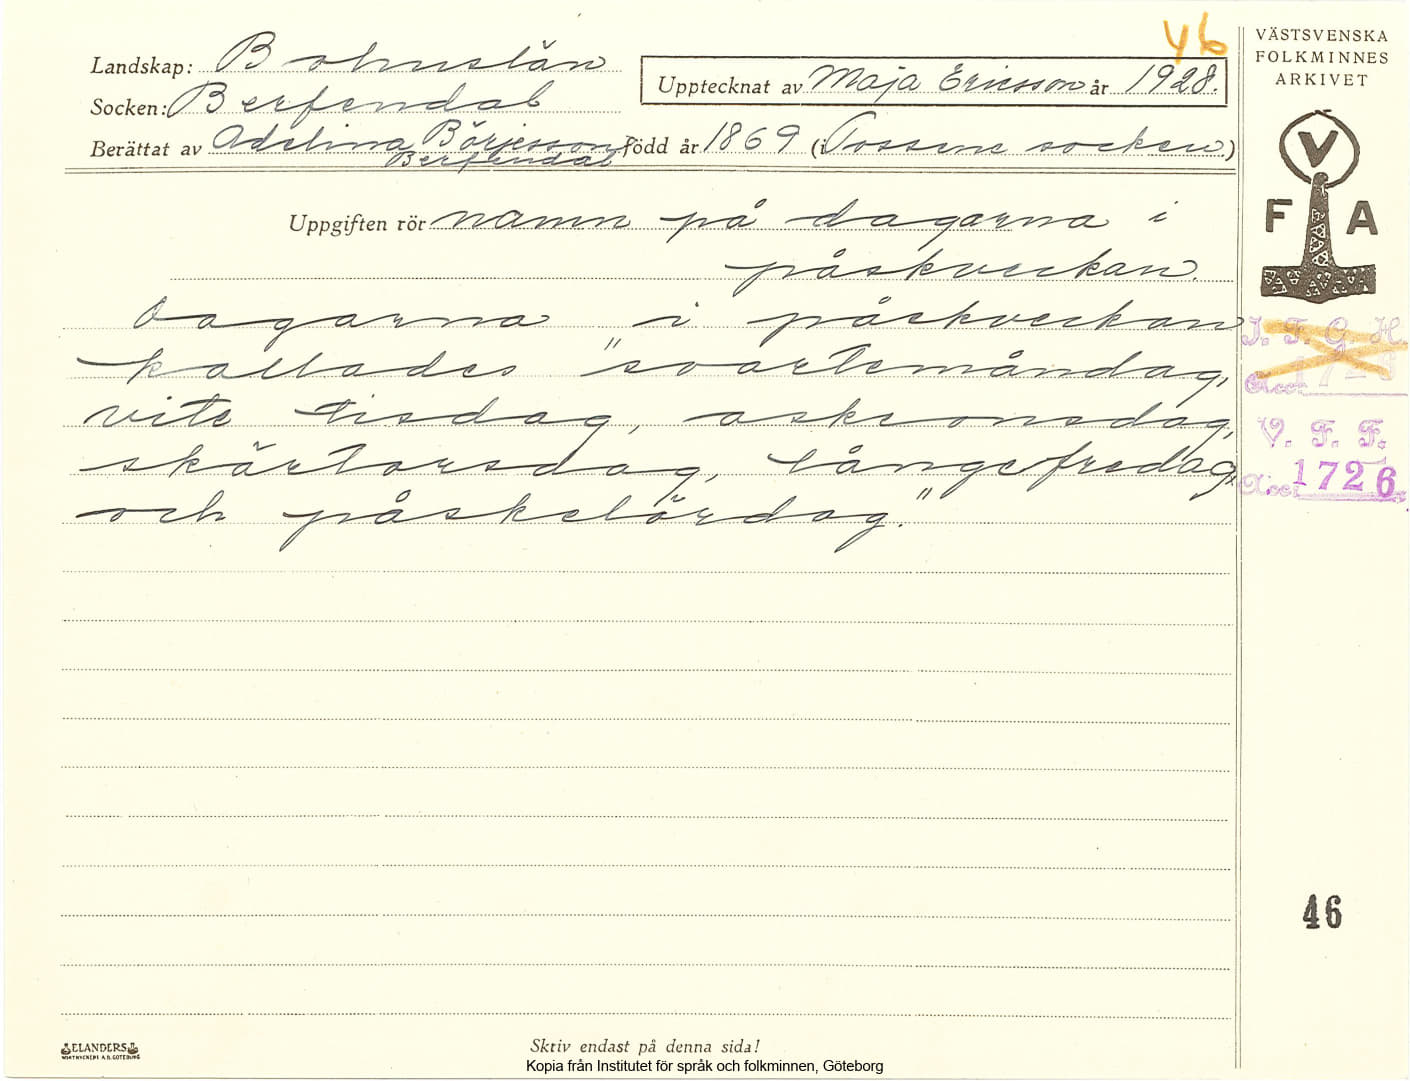 46
VÄSTSVENSKA
FOLKMINNES
ARKIVET
Landskap: Bohuslän
Upptecknat av Maja Ericsson år 1928.
Socken: Berfendal
Berättat av Adelina Börjesson född år 1869 (i Tossene socken)
Berfendal
V
F A
Uppgiften rör namn på dagarna i
påskveckan.
Dagarna i påskveckan
kallades "svartemåndag,
vite tisdag, askeonsdag,
skärtorsdag, långefredag,
och påskelördag."
I. F. G. H.
Acc.
V. F. F.
Acc: 1726
46
ELANDERS
Skriv endast på denna sida!
Kopia från Institutet för språk och folkminnen, Göteborg